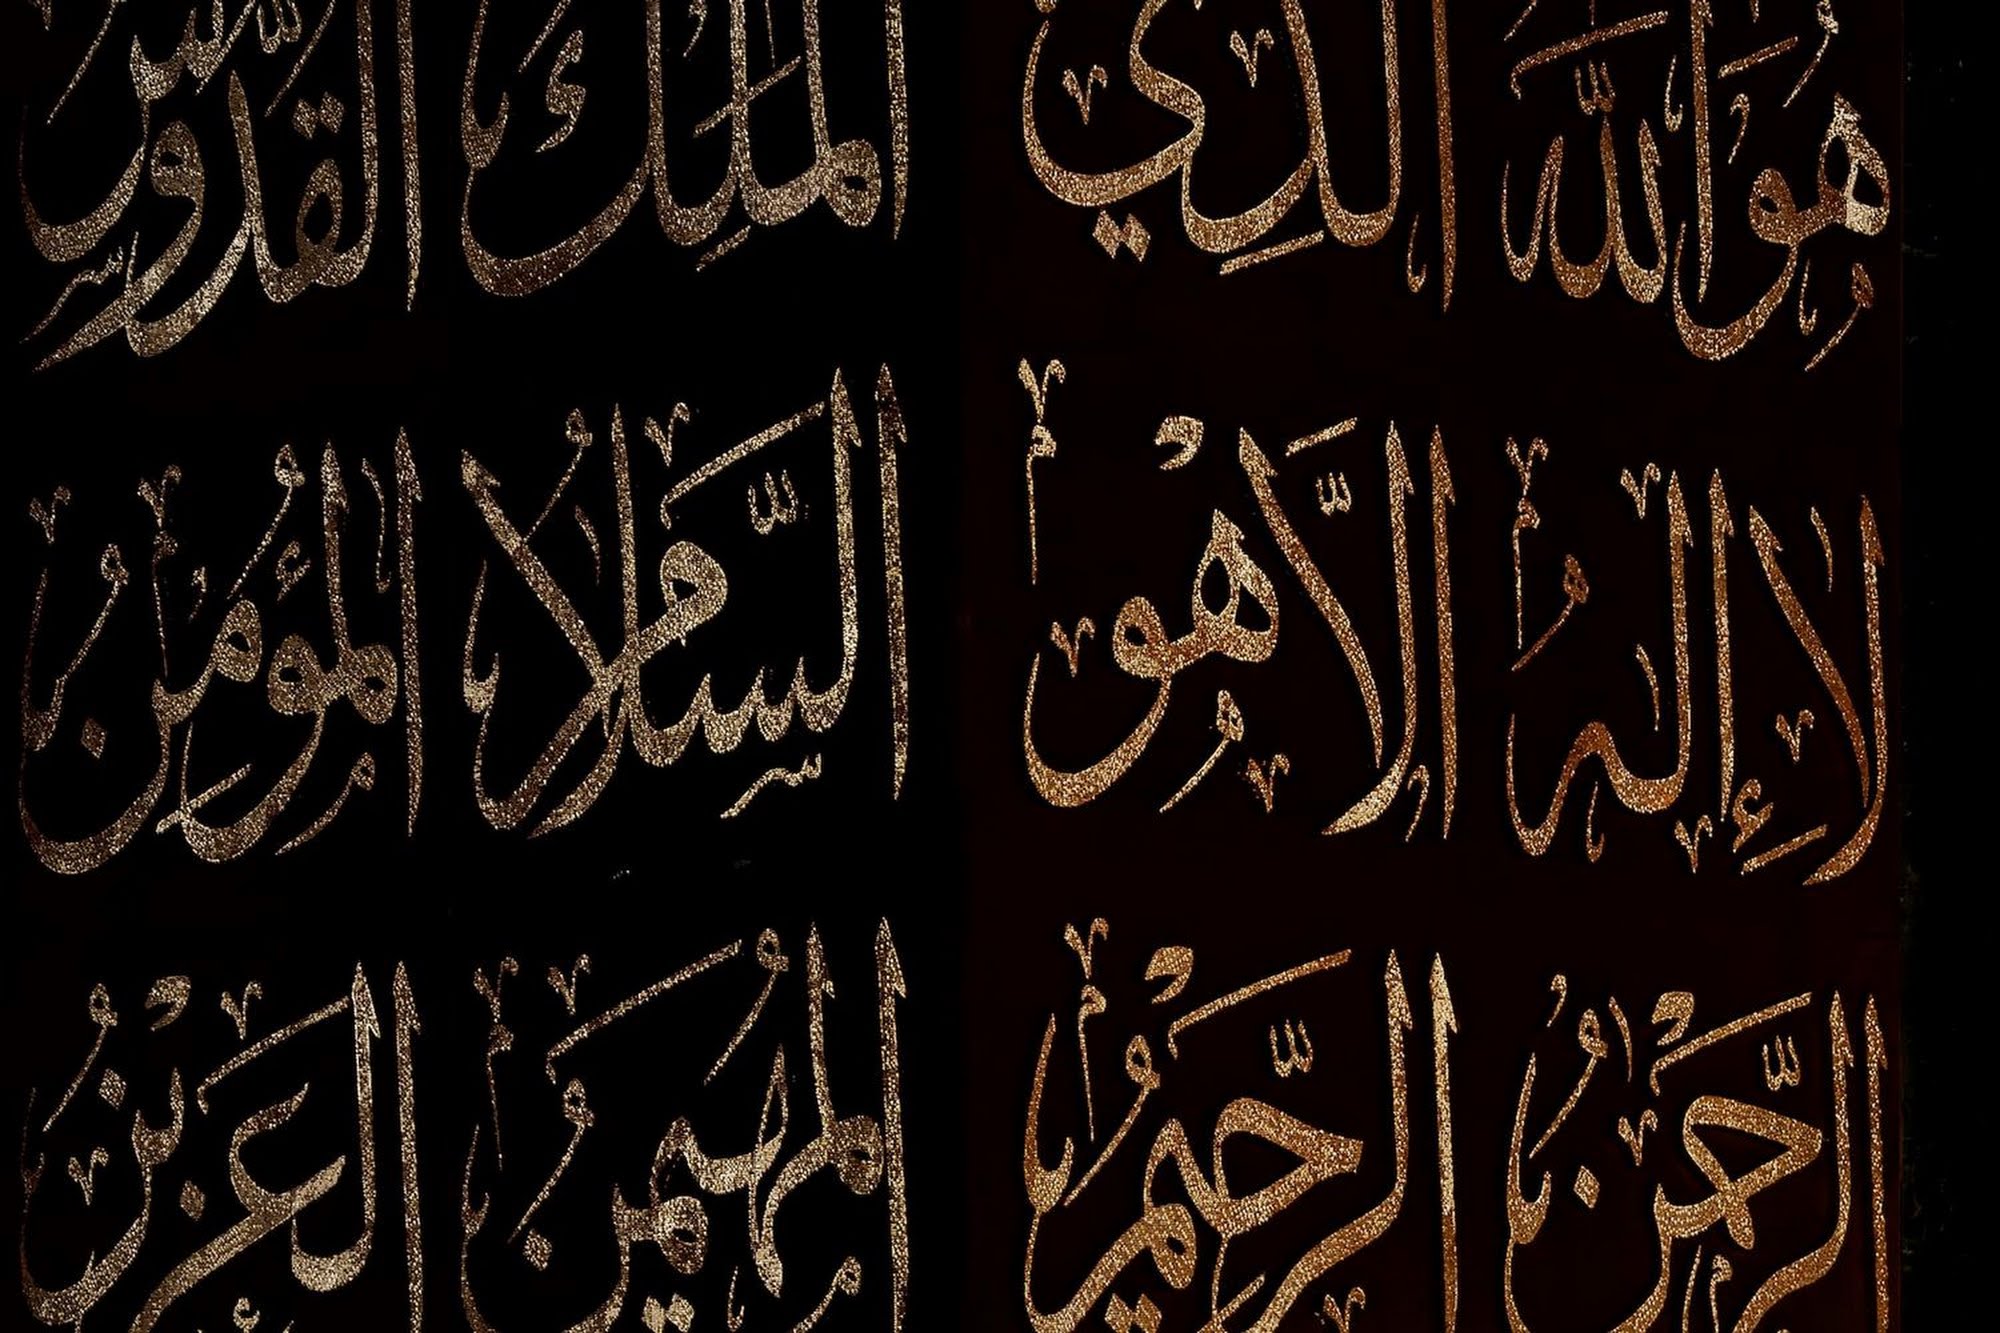 هُوَ اللَّهُ الَّذِي الْمَلِكُ الْقُدُّوسُ
لَا إِلَٰهَ إِلَّا هُوَ السَّلَامُ الْمُؤْمِنُ
الرَّحْمَٰنُ الرَّحِيمُ الْمُهَيْمِنُ الْعَزِيزُ